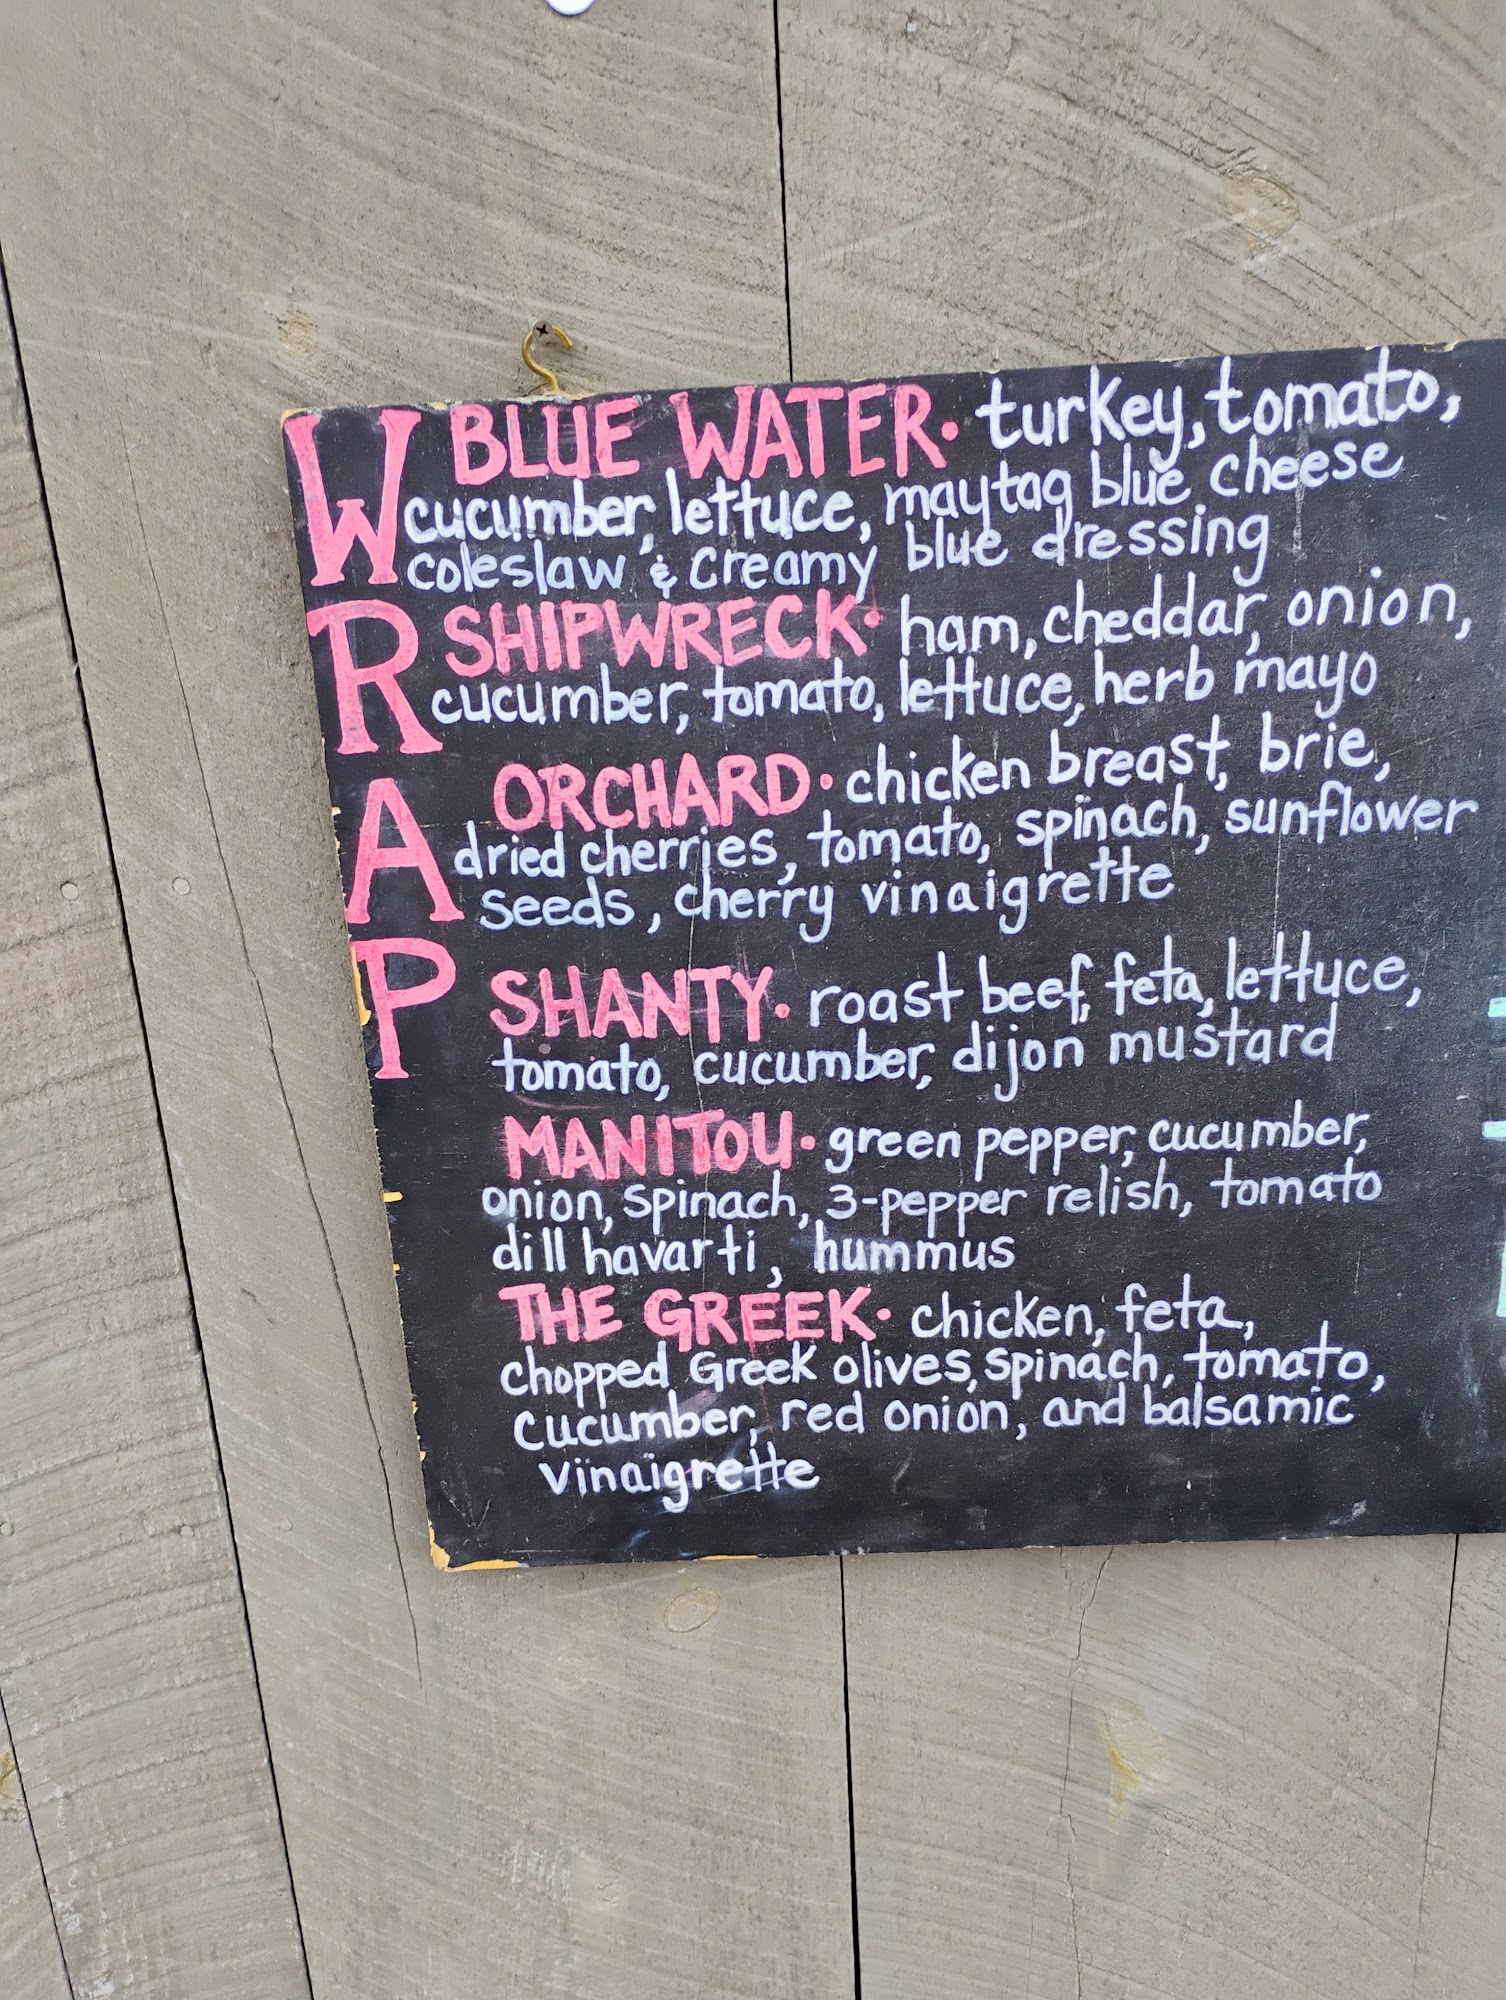 WRAP
BLUE WATER • turkey, tomato,
cucumber, lettuce, maytag blue cheese
coleslaw & creamy blue dressing
SHIPWRECK • ham, cheddar, onion,
cucumber, tomato, lettuce, herb mayo
ORCHARD • chicken breast, brie,
dried cherries, tomato, spinach, sunflower
seeds, cherry vinaigrette
SHANTY • roast beef, feta, lettuce,
tomato, cucumber, dijon mustard
MANITOU • green pepper, cucumber,
onion, spinach, 3-pepper relish, tomato
dill havarti, hummus
THE GREEK • chicken, feta,
chopped Greek olives, spinach, tomato,
cucumber, red onion, and balsamic
vinaigrette